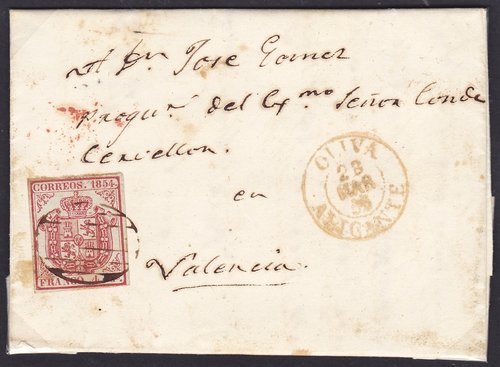 A Dn Jose Gomez
procurr del Exmo Señor Conde
Cervellon.
en
Valencia.
CORREOS. 1854.
FRANCO
OLIVA
23
MAR
ALICANTE